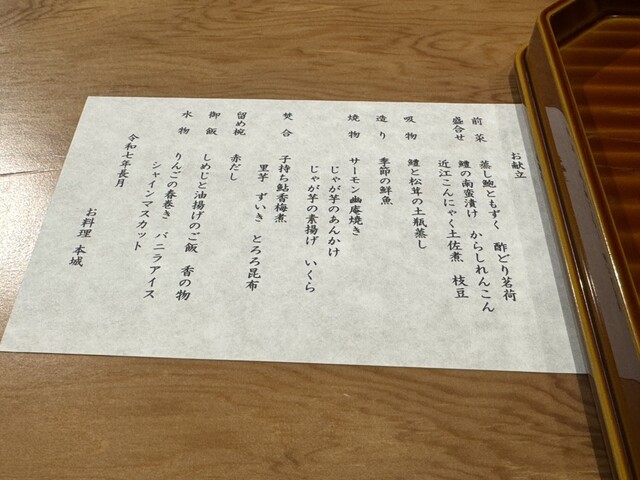 お献立
前菜 蒸し鮑ともずく 酢どり茗荷
盛合せ 鱧の南蛮漬け からしれんこん
近江こんにゃく土佐煮 枝豆
吸物 鱧と松茸の土瓶蒸し
造り 季節の鮮魚
焼物 サーモン幽庵焼き
じゃが芋のあんかけ
じゃが芋の素揚げ いくら
焚合 子持ち鮎香梅煮
里芋 ずいき とろろ昆布
留め椀 赤だし
御飯 しめじと油揚げのご飯 香の物
水物 りんごの春巻き バニラアイス
シャインマスカット
令和七年長月
お料理 本城